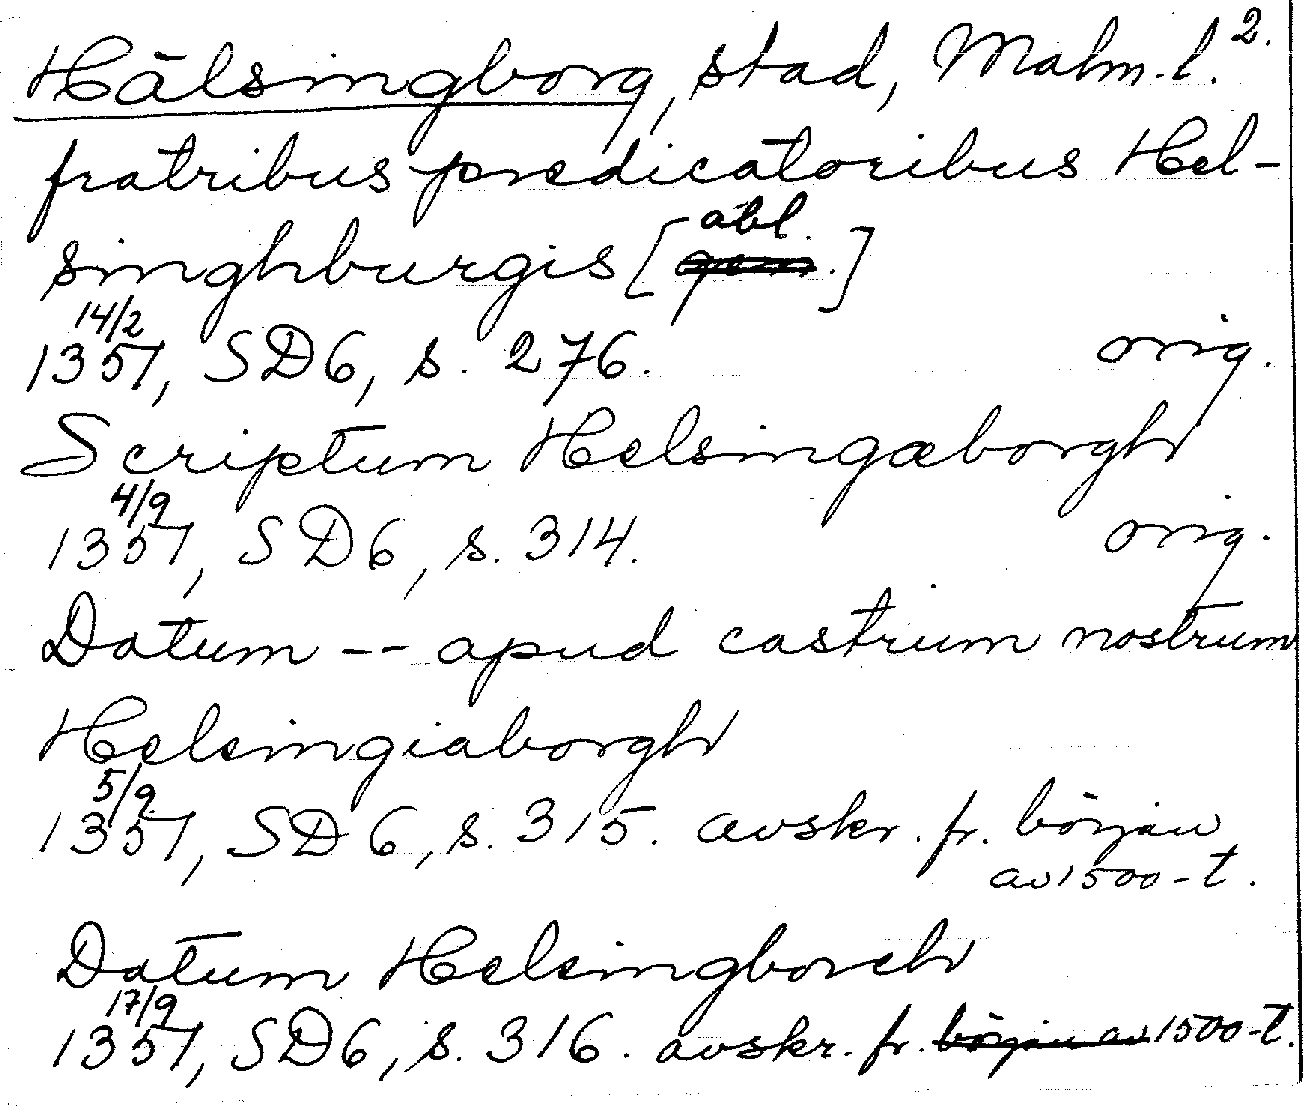 Hälsingborg, stad, Malm.l. 2.
fratribus predicatoribus Hel-
singhburgis [gen. abl.]
14/2
1357, SD6, s. 276. orig.
Scriptum Helsingæborgh
4/9
1357, SD6, s. 314. orig.
Datum -- apud castrum nostrum
Helsingiaborgh
5/9
1357, SD6, s. 315. avskr. fr. början
av 1500-t.
Datum Helsingborch
17/9
1357, SD6, s. 316. avskr. fr. början av 1500-t.